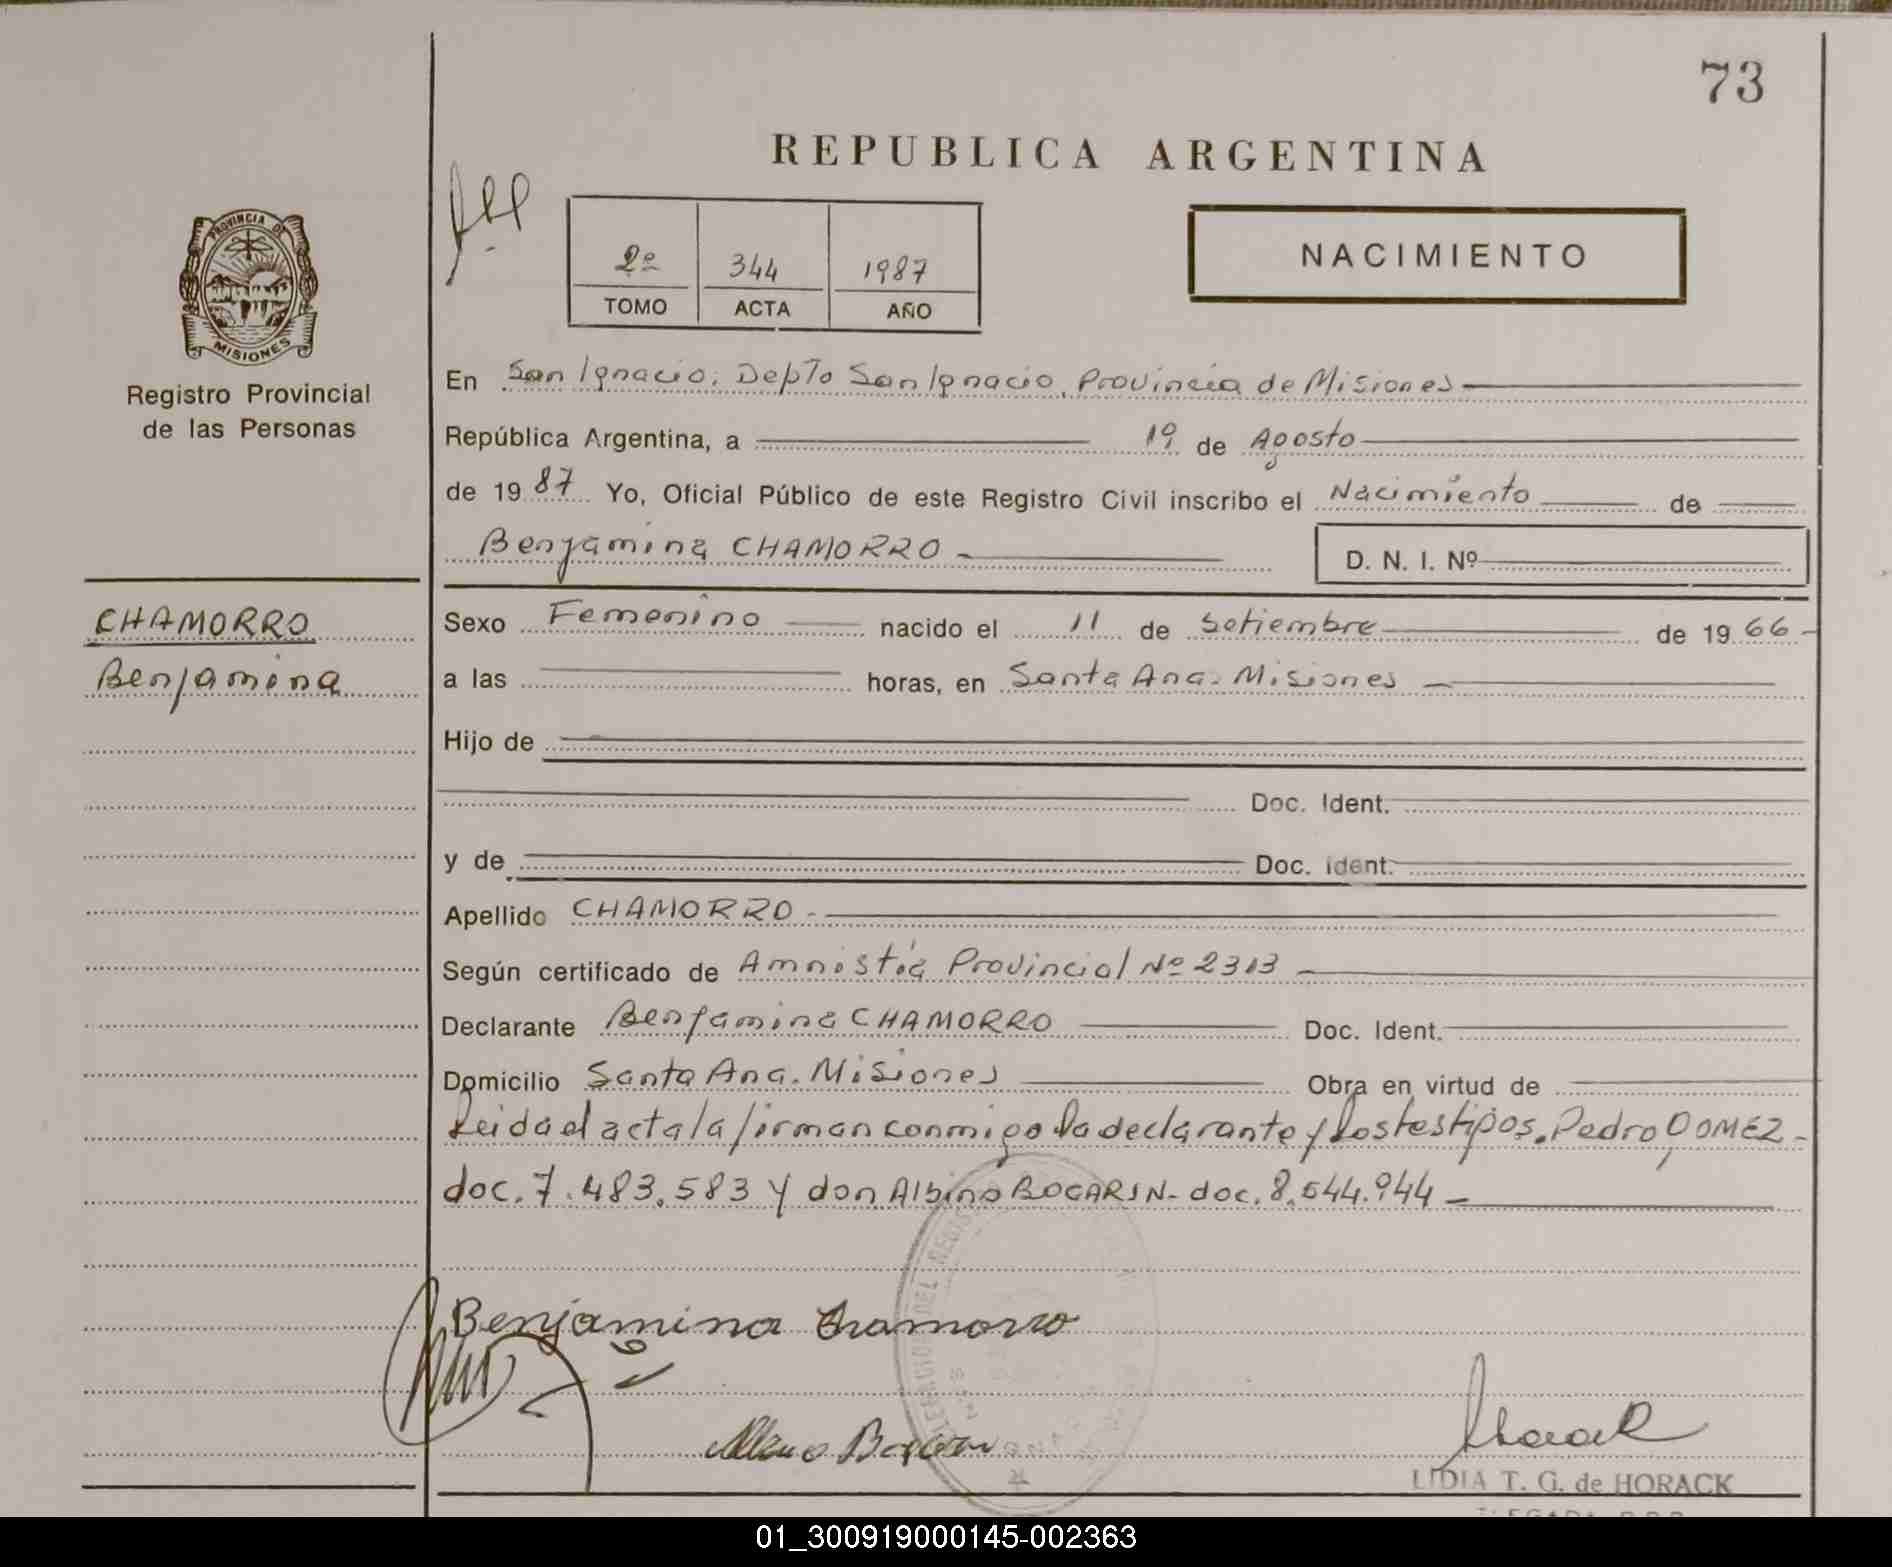 73
REPUBLICA ARGENTINA
PROVINCIA DE
MISIONES
Registro Provincial
de las Personas
2º 344 1987
TOMO ACTA AÑO
NACIMIENTO
En San Ignacio. Depto San Ignacio, Provincia de Misiones
República Argentina, a 19 de Agosto
de 1987 Yo, Oficial Público de este Registro Civil inscribo el Nacimiento de
Benjamina CHAMORRO
D. N. I. Nº
CHAMORRO
Benjamina
Sexo Femenino nacido el 11 de Setiembre de 1966
a las horas, en Santa Ana. Misiones
Hijo de
Doc. Ident.
y de Doc. Ident.
Apellido CHAMORRO
Según certificado de Amnistía Provincial Nº 2313
Declarante Benjamina CHAMORRO Doc. Ident.
Domicilio Santa Ana. Misiones Obra en virtud de
Leida el acta la firman conmigo la declarante y los testigos. Pedro
doc. 7.483.583 y don Albino BOGARIN- doc. 8.544.944
Benjamina Chamorro
DEL REGISTRO
Albino Bogarin
Horack
LIDIA T. G. de HORACK
01_300919000145-002363